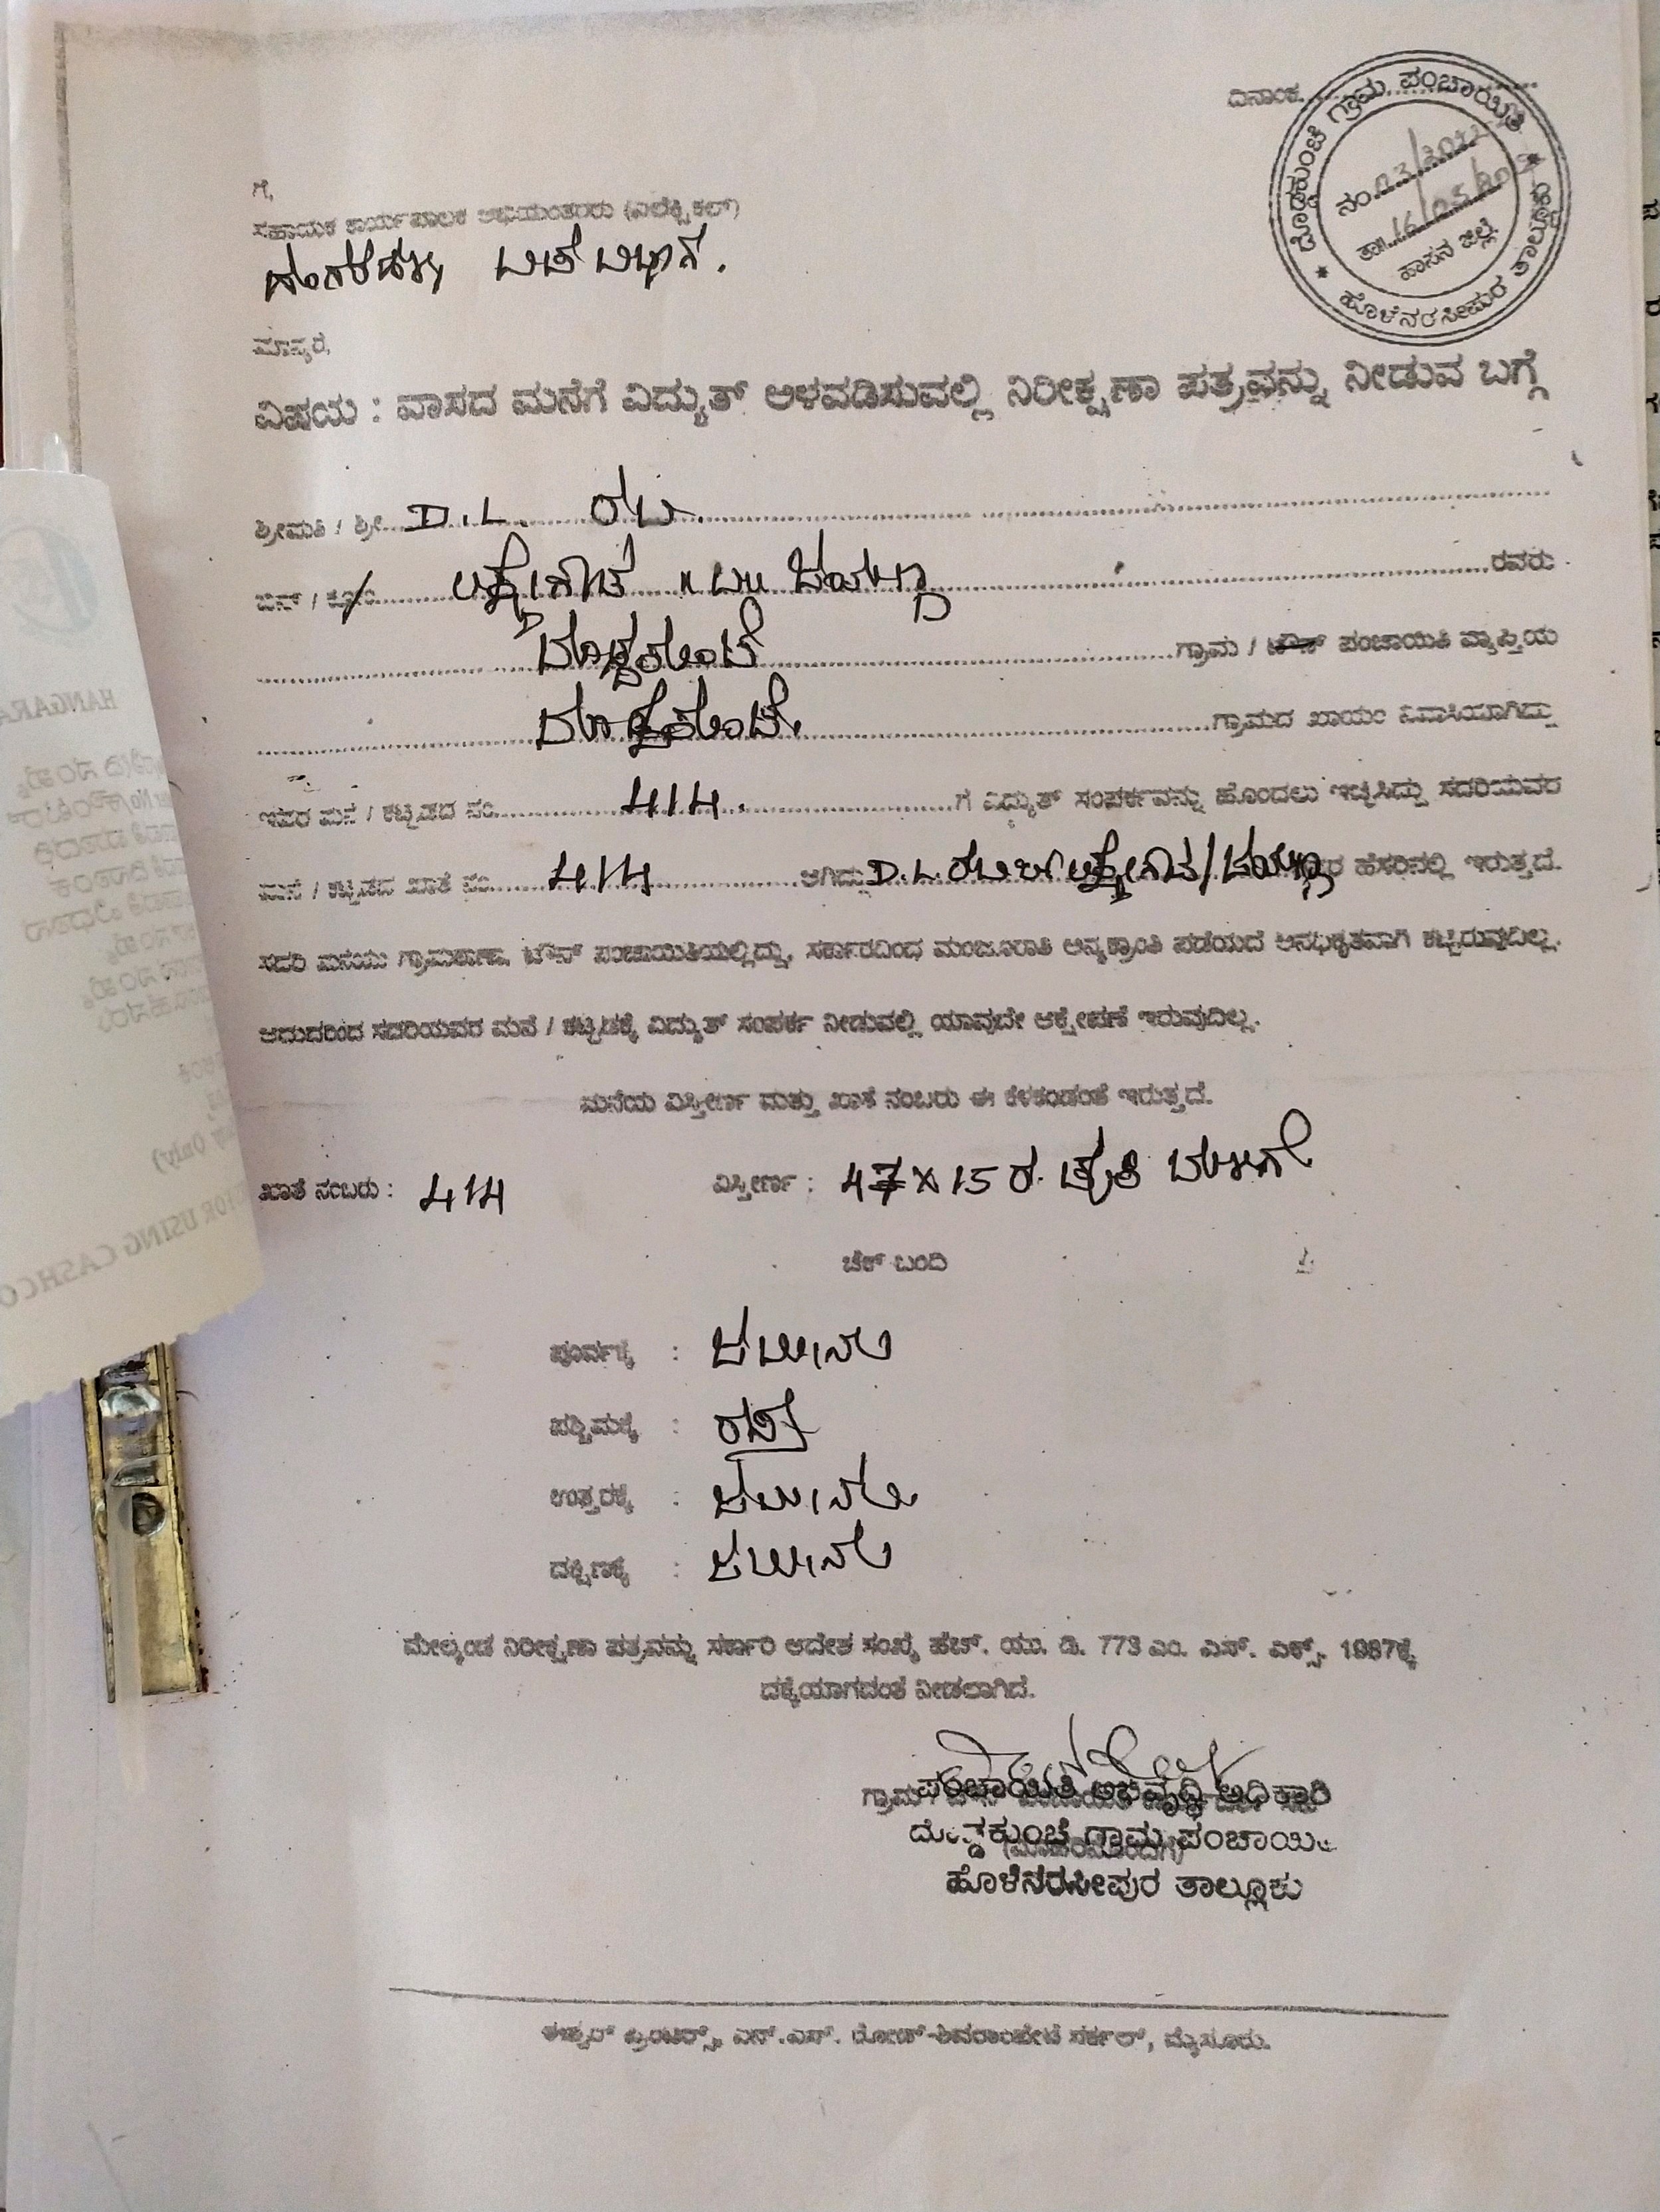 ದಿನಾಂಕ
ದೊಡ್ಡಕುಂಚೆ ಗ್ರಾಮ ಪಂಚಾಯಿತಿ
ನಂ. 03/202
ತಾ 16/05/202
ಹಾಸನ ಜಿಲ್ಲೆ
ಹೊಳೆನರಸೀಪುರ ತಾಲ್ಲೂಕು
ಗೆ,
ಸಹಾಯಕ ಕಾರ್ಯಪಾಲಕ ಅಭಿಯಂತರರು (ಎಲೆಕ್ಟ್ರಿಕಲ್)
ಮಾನ್ಯರೆ,
ವಿಷಯ : ವಾಸದ ಮನೆಗೆ ವಿದ್ಯುತ್ ಅಳವಡಿಸುವಲ್ಲಿ ನಿರೀಕ್ಷಣಾ ಪತ್ರವನ್ನು ನೀಡುವ ಬಗ್ಗೆ
ಶ್ರೀಮತಿ / ಶ್ರೀ D.L. ರವಿ.
ಬಿನ್ / ಕೋಂ ಲಕ್ಷ್ಮೇಗೌಡ ರವರು
ದೊಡ್ಡಕುಂಚೆ ಗ್ರಾಮ / ಟೌನ್ ಪಂಚಾಯಿತಿ ವ್ಯಾಪ್ತಿಯ
ದೊಡ್ಡಕುಂಚೆ ಗ್ರಾಮದ ಖಾಯಂ ನಿವಾಸಿಯಾಗಿದ್ದು
ಇವರ ಮನೆ / ಕಟ್ಟಡದ ನಂ. 414. ಗೆ ವಿದ್ಯುತ್ ಸಂಪರ್ಕವನ್ನು ಹೊಂದಲು ಇಚ್ಛಿಸಿದ್ದು ಸದರಿಯವರ
ಮನೆ / ಕಟ್ಟಡದ ಖಾತೆ ನಂ. 414 ಆಗಿದ್ದು D.L. ರವಿ ಬಿನ್ ಲಕ್ಷ್ಮೇಗೌಡ / ರ ಹೆಸರಿನಲ್ಲಿ ಇರುತ್ತದೆ.
ಸದರಿ ಮನೆಯು ಗ್ರಾಮಠಾಣಾ, ಟೌನ್ ಪಂಚಾಯಿತಿಯಲ್ಲಿದ್ದು, ಸರ್ಕಾರದಿಂದ ಮಂಜೂರಾತಿ ಅನ್ಯಕ್ರಾಂತಿ ಪಡೆಯದೆ ಅನಧಿಕೃತವಾಗಿ ಕಟ್ಟಿರುವುದಿಲ್ಲ.
ಆದುದರಿಂದ ಸದರಿಯವರ ಮನೆ / ಕಟ್ಟಡಕ್ಕೆ ವಿದ್ಯುತ್ ಸಂಪರ್ಕ ನೀಡುವಲ್ಲಿ ಯಾವುದೇ ಆಕ್ಷೇಪಣೆ ಇರುವುದಿಲ್ಲ.
ಮನೆಯ ವಿಸ್ತೀರ್ಣ ಮತ್ತು ಖಾತೆ ನಂಬರು ಈ ಕೆಳಕಂಡಂತೆ ಇರುತ್ತದೆ.
ಖಾತೆ ನಂಬರು : 414 ವಿಸ್ತೀರ್ಣ : 47 X 15
ಚೆಕ್ ಬಂದಿ
ಪೂರ್ವಕ್ಕೆ : ಜಮೀನು
ಪಶ್ಚಿಮಕ್ಕೆ : ರಸ್ತೆ
ಉತ್ತರಕ್ಕೆ : ಜಮೀನು
ದಕ್ಷಿಣಕ್ಕೆ : ಜಮೀನು
ಮೇಲ್ಕಂಡ ನಿರೀಕ್ಷಣಾ ಪತ್ರವನ್ನು ಸರ್ಕಾರಿ ಆದೇಶ ಸಂಖ್ಯೆ ಹೆಚ್. ಯು. ಡಿ. 773 ಎಂ. ಎನ್. ಎಕ್ಸ್. 1987ಕ್ಕೆ
ದಕ್ಕೆಯಾಗದಂತೆ ನೀಡಲಾಗಿದೆ.
ಪಂಚಾಯಿತಿ ಅಭಿವೃದ್ಧಿ ಅಧಿಕಾರಿ
ದೊಡ್ಡಕುಂಚೆ ಗ್ರಾಮ ಪಂಚಾಯಿತಿ
ಹೊಳೆನರಸೀಪುರ ತಾಲ್ಲೂಕು
ಈಶ್ವರ್ ಪ್ರಿಂಟರ್ಸ್, ಎನ್.ಎಸ್. ರೋಡ್-ಶಿವರಾಂಪೇಟೆ ಸರ್ಕಲ್, ಮೈಸೂರು.